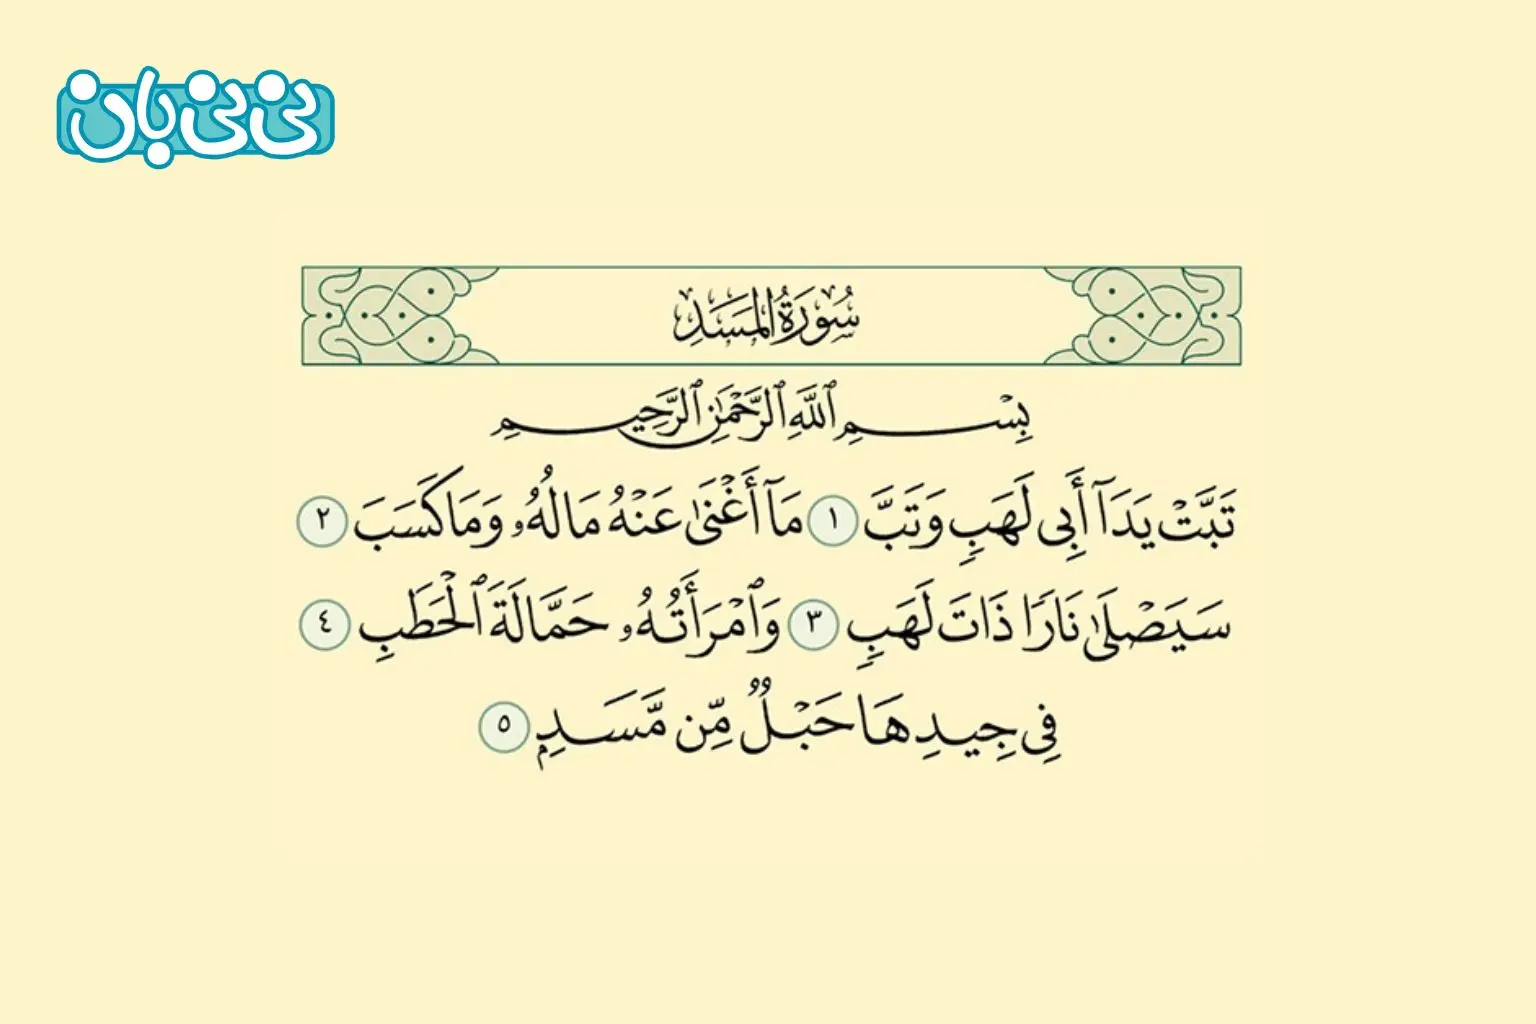 نی نی بان
سُورَةُ المَسَدِ
بِسْمِ ٱللَّهِ ٱلرَّحْمَٰنِ ٱلرَّحِيمِ
تَبَّتْ يَدَآ أَبِى لَهَبٍ وَتَبَّ ١ مَآ أَغْنَىٰ عَنْهُ مَالُهُۥ وَمَا كَسَبَ ٢
سَيَصْلَىٰ نَارًا ذَاتَ لَهَبٍ ٣ وَٱمْرَأَتُهُۥ حَمَّالَةَ ٱلْحَطَبِ ٤
فِى جِيدِهَا حَبْلٌ مِّن مَّسَدٍۭ ٥